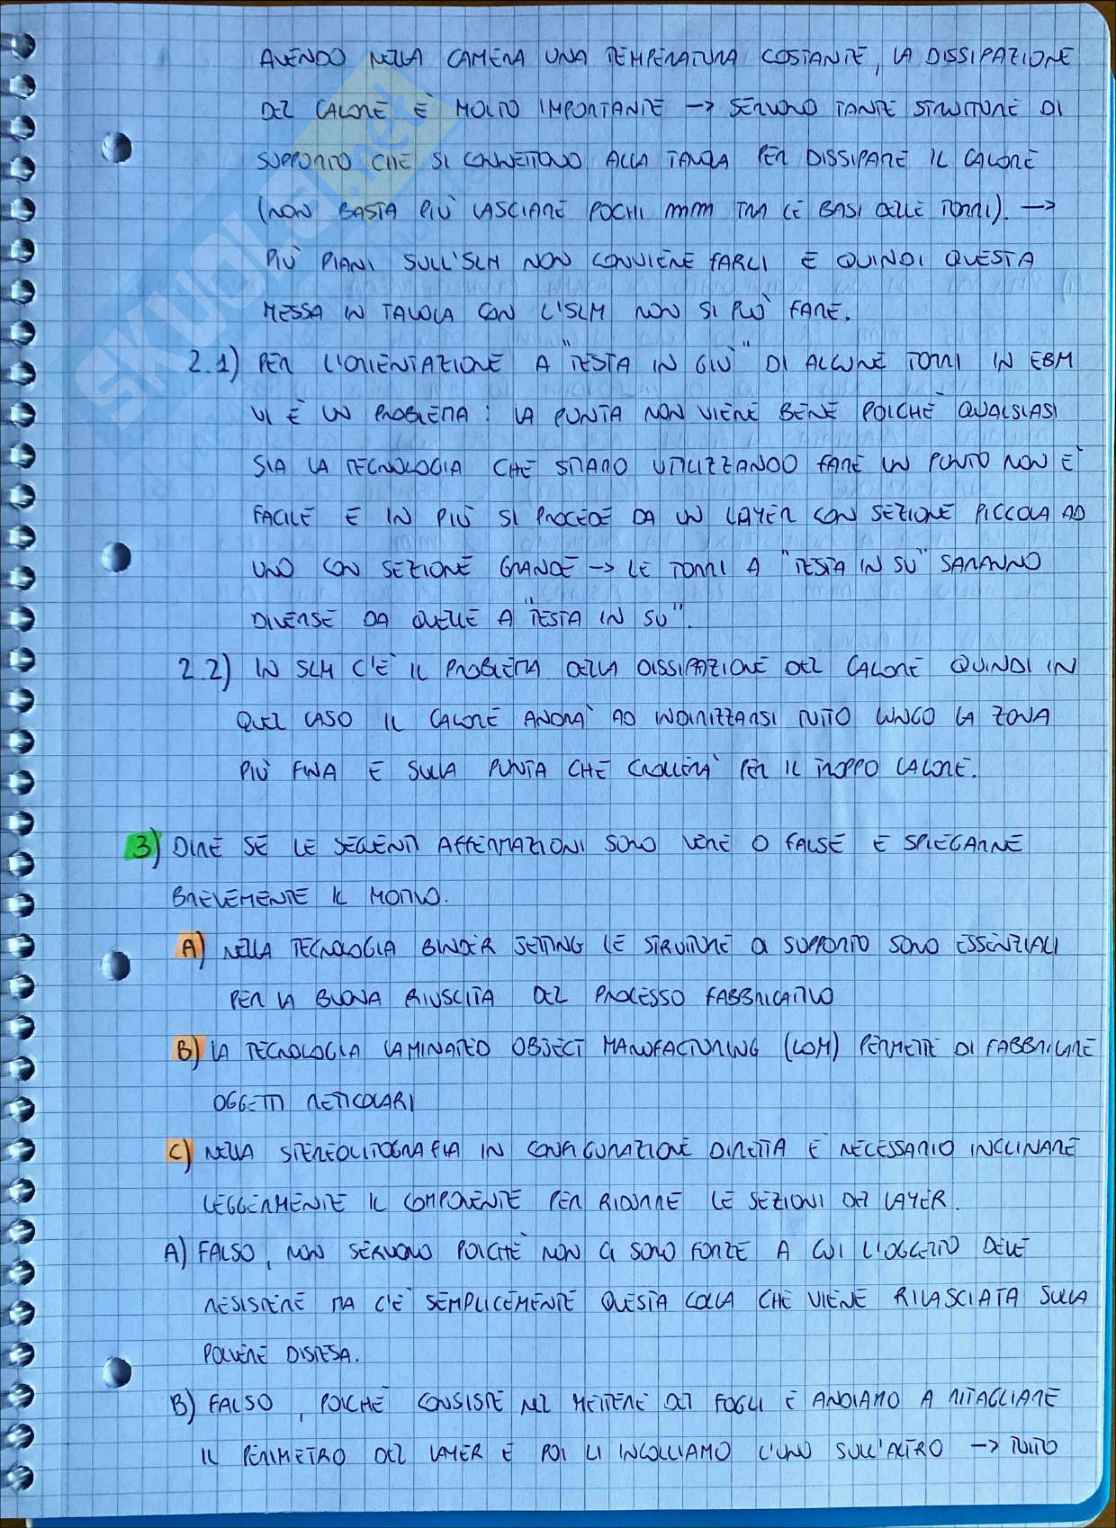 AVENDO NELLA CAMERA UNA TEMPERATURA COSTANTE, LA DISSIPAZIONE
DEL CALORE È MOLTO IMPORTANTE → SERVONO TANTE STRUTTURE DI
SUPPORTO CHE SI CONNETTONO ALLA TAVOLA PER DISSIPARE IL CALORE
(NON BASTA PIÙ LASCIARE POCHI mm TRA LE BASI DELLE TORRI). →
PIÙ PIANI SULL'SLM NON CONVIENE FARLI E QUINDI QUESTA
MESSA IN TAVOLA CON L'SLM NON SI PUÒ FARE.
2.1) PER L'ORIENTAZIONE A "TESTA IN GIÙ" DI ALCUNE TORRI IN EBM
VI È UN PROBLEMA: LA PUNTA NON VIENE BENE POICHÈ QUALSIASI
SIA LA TECNOLOGIA CHE STIAMO UTILIZZANDO FARE UN PUNTO NON È
FACILE E IN PIÙ SI PROCEDE DA UN LAYER CON SEZIONE PICCOLA AD
UNO CON SEZIONE GRANDE → LE TORRI A "TESTA IN SU" SARANNO
DIVERSE DA QUELLE A "TESTA IN SU".
2.2) IN SLM C'È IL PROBLEMA DELLA DISSIPAZIONE DEL CALORE QUINDI IN
QUEL CASO IL CALORE ANDRA' AD INDIRIZZARSI TUTTO LUNGO LA ZONA
PIÙ FINA E SULLA PUNTA CHE CROLLERA' PER IL TROPPO CALORE.
3) DIRE SE LE SEGUENTI AFFERMAZIONI SONO VERE O FALSE E SPIEGARNE
BREVEMENTE IL MOTIVO.
A) NELLA TECNOLOGIA BINDER JETTING LE STRUTTURE DI SUPPORTO SONO ESSENZIALI
PER LA BUONA RIUSCITA DEL PROCESSO FABBRICATIVO
B) LA TECNOLOGIA LAMINATED OBJECT MANUFACTURING (LOM) PERMETTE DI FABBRICARE
OGGETTI RETICOLARI
C) NELLA STEREOLITOGRAFIA IN CONFIGURAZIONE DIRETTA È NECESSARIO INCLINARE
LEGGERMENTE IL COMPONENTE PER RIDURRE LE SEZIONI DEL LAYER.
A) FALSO, NON SERVONO POICHÈ NON CI SONO FORZE A CUI L'OGGETTO DEVE
RESISTERE MA C'È SEMPLICEMENTE QUESTA COLLA CHE VIENE RILASCIATA SULLA
POLVERE DISTESA.
B) FALSO, POICHÈ CONSISTE NEL METTERE DEI FOGLI E ANDIAMO A RITAGLIARE
IL PERIMETRO DEL LAYER E POI LI INCOLLIAMO L'UNO SULL'ALTRO → TUTTO
SKUOLA.net